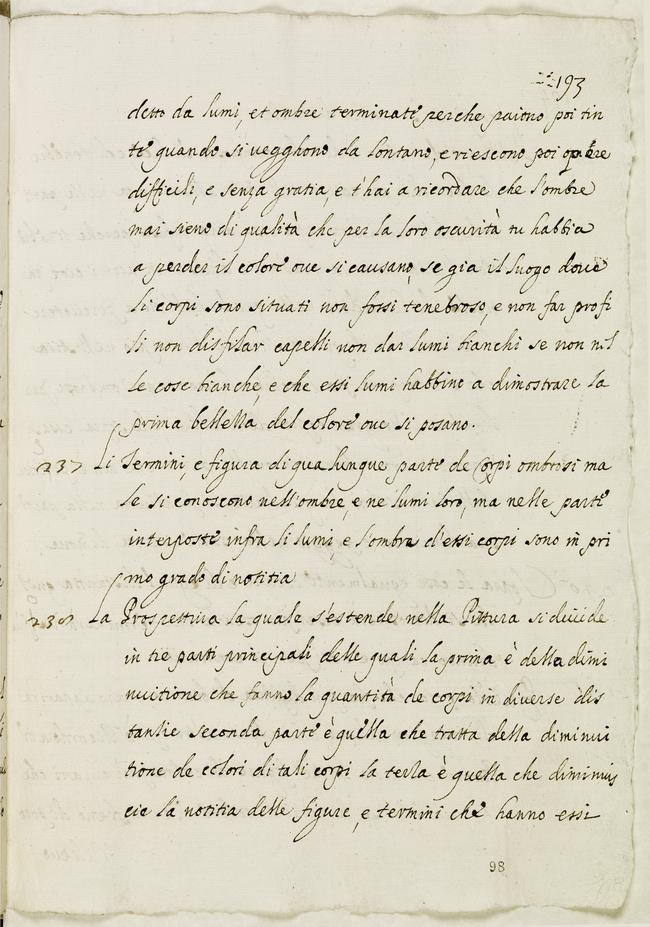 193
detto da lumi, et ombre terminate perche paiono poi tin
te quando si vegghono da lontano, e riescono poi opere
difficili, e senza gratia, e t'hai a ricordare che l'ombre
mai sieno di qualità che per la loro oscurità tu habbia
a perder il colore oue si causano, se gia il luogo doue
li corpi sono situati non fossi tenebroso, e non far profi
li non disfilar capelli non dar lumi bianchi se non nel
le cose bianche, e che essi lumi habbino a dimostrare la
prima bellella del colore oue si posano.
237 Li Termini, e figura di qualunque parte de Corpi ombrosi ma
le si conoscono nell'ombre, e ne lumi loro, ma nelle parti
interposte infra li lumi e l'ombra d'essi corpi sono in pri
mo grado di notitia
238 La Prospettiua la quale s'estende nella Pittura si diuide
in tre parti principali delle quali la prima è della dimi
nuitione che fanno la quantità de corpi in diuerse dis
tantie seconda parte è quella che tratta della diminui
tione de colori di tali corpi la terla è quella che diminuis
cie la notitia delle figure, e termini che hanno essi
98